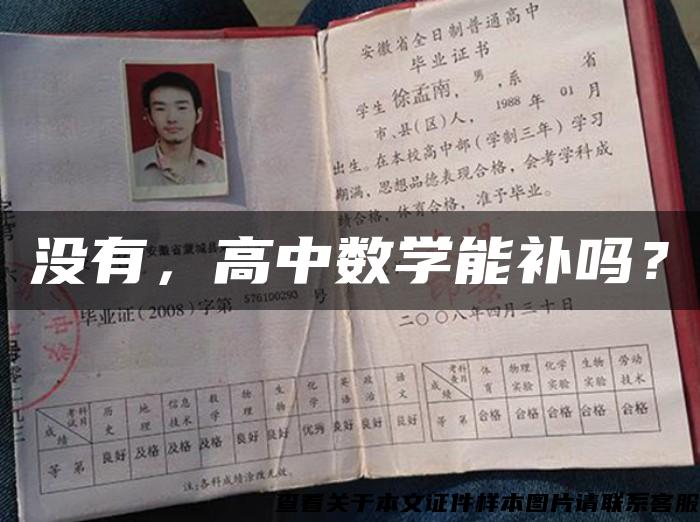 安徽省全日制普通高中
毕业证书
学生徐孟南，男，系 省
市、县(区)人，1988年01月
出生。在本校高中部(学制三年)学习
期满，思想品德表现合格，会考学科成
绩合格，体育合格，准予毕业。
安徽省蒙城县
没有，高中数学能补吗？
毕业证(2008)字第 576100293 号
二〇〇八年四月三十日
成绩 考试科目 历史 地理 信息技术 数学 物理 生物 化学 英语 政治 语文
等第 良好 及格 及格 及格 良好 良好 优秀 良好 良好 良好
注:各科成绩涂改无效。
成绩 考查科目 体育 物理实验 化学实验 生物实验 劳动技术
等第 合格 合格 合格 合格 合格
查看关于本文证件样本图片请联系客服